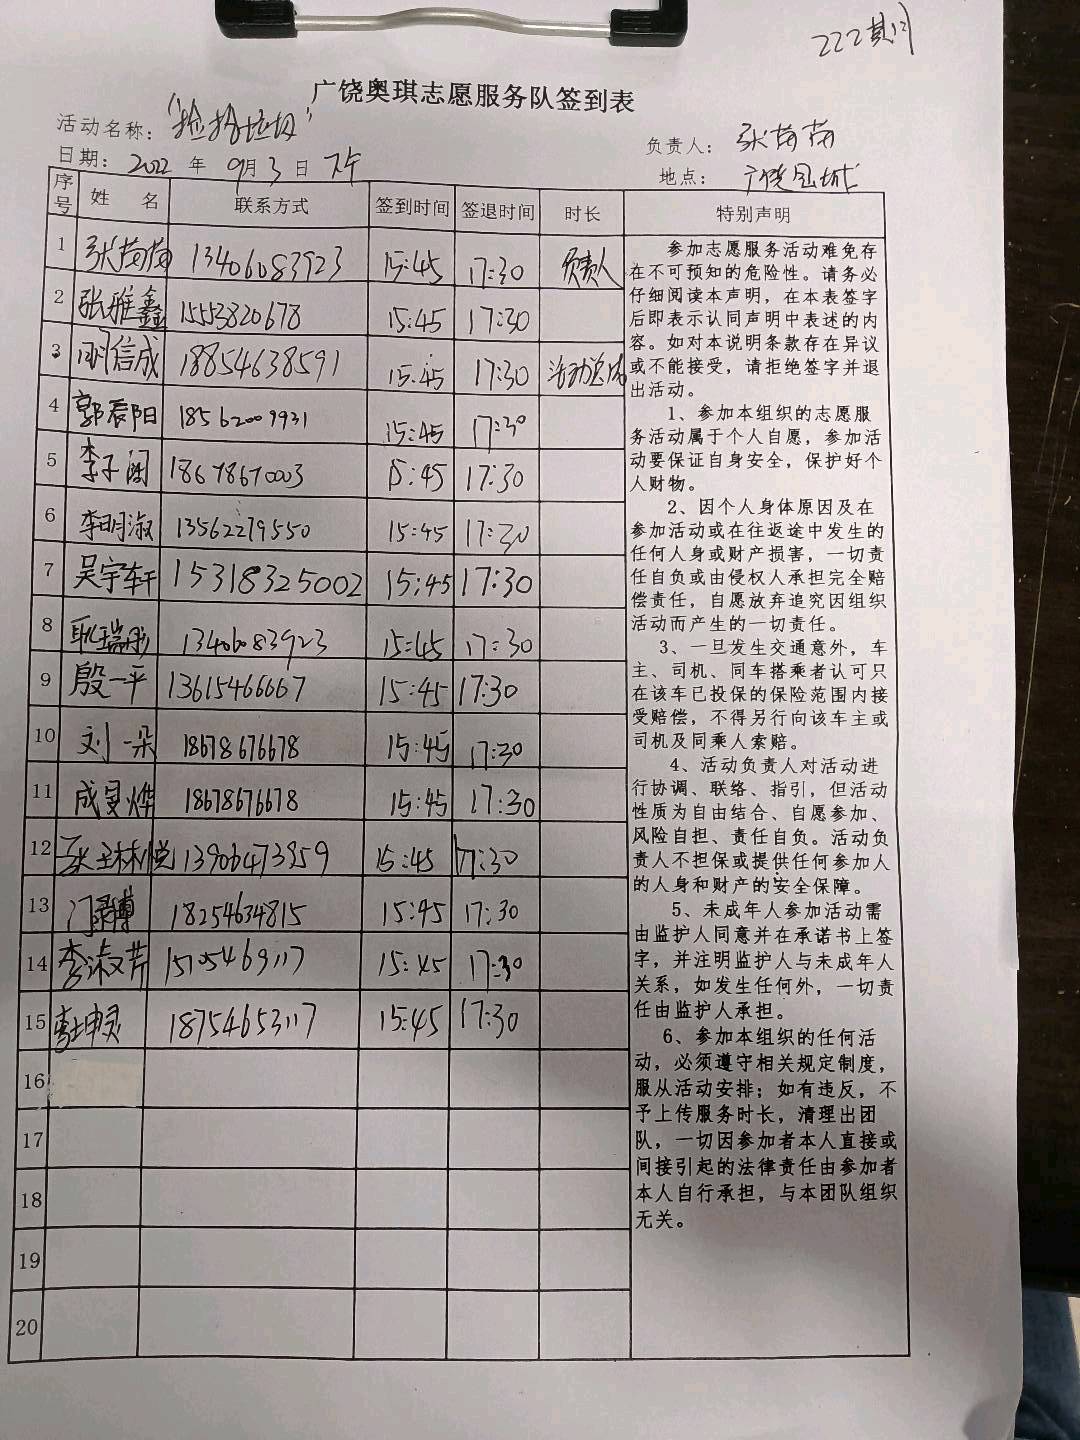 222期
广饶奥琪志愿服务队签到表
活动名称：“捡拾垃圾”
负责人：张苗苗
日期：2022年9月3日 下午
地点：广饶
序号 姓名 联系方式 签到时间 签退时间 时长 特别声明
1 张苗苗 13406083923 15:45 17:30 负责人
2 张雅鑫 15553820678 15:45 17:30
3 信成 18854638591 15:45 17:30 活动总结
4 郭辰阳 18562009931 15:45 17:30
5 李子阔 18678670003 15:45 17:30
6 李明淑 13562279550 15:45 17:30
7 吴宇轩 15318325002 15:45 17:30
8 耿瑞彤 13406083923 15:45 17:30
9 殷一平 13615466667 15:45 17:30
10 刘一朵 18678676678 15:45 17:30
11 成旻烨 18678676678 15:45 17:30
12 悦 13906473859 15:45 17:30
13 门博 18254634815 15:45 17:30
14 李淑芹 15105469117 15:45 17:30
15 坤灵 18754653117 15:45 17:30
16
17
18
19
20
参加志愿服务活动难免存
在不可预知的危险性。请务必
仔细阅读本声明，在本表签字
后即表示认同声明中表述的内
容。如对本说明条款存在异议
或不能接受，请拒绝签字并退
出活动。
1、参加本组织的志愿服
务活动属于个人自愿，参加活
动要保证自身安全，保护好个
人财物。
2、因个人身体原因及在
参加活动或在往返途中发生的
任何人身或财产损害，一切责
任自负或由侵权人承担完全赔
偿责任，自愿放弃追究因组织
活动而产生的一切责任。
3、一旦发生交通意外，车
主、司机、同车搭乘者认可只
在该车已投保的保险范围内接
受赔偿，不得另行向该车主或
司机及同乘人索赔。
4、活动负责人对活动进
行协调、联络、指引，但活动
性质为自由结合、自愿参加、
风险自担、责任自负。活动负
责人不担保或提供任何参加人
的人身和财产的安全保障。
5、未成年人参加活动需
由监护人同意并在承诺书上签
字，并注明监护人与未成年人
关系，如发生任何外，一切责
任由监护人承担。
6、参加本组织的任何活
动，必须遵守相关规定制度，
服从活动安排；如有违反，不
予上传服务时长，清理出团
队，一切因参加者本人直接或
间接引起的法律责任由参加者
本人自行承担，与本团队组织
无关。